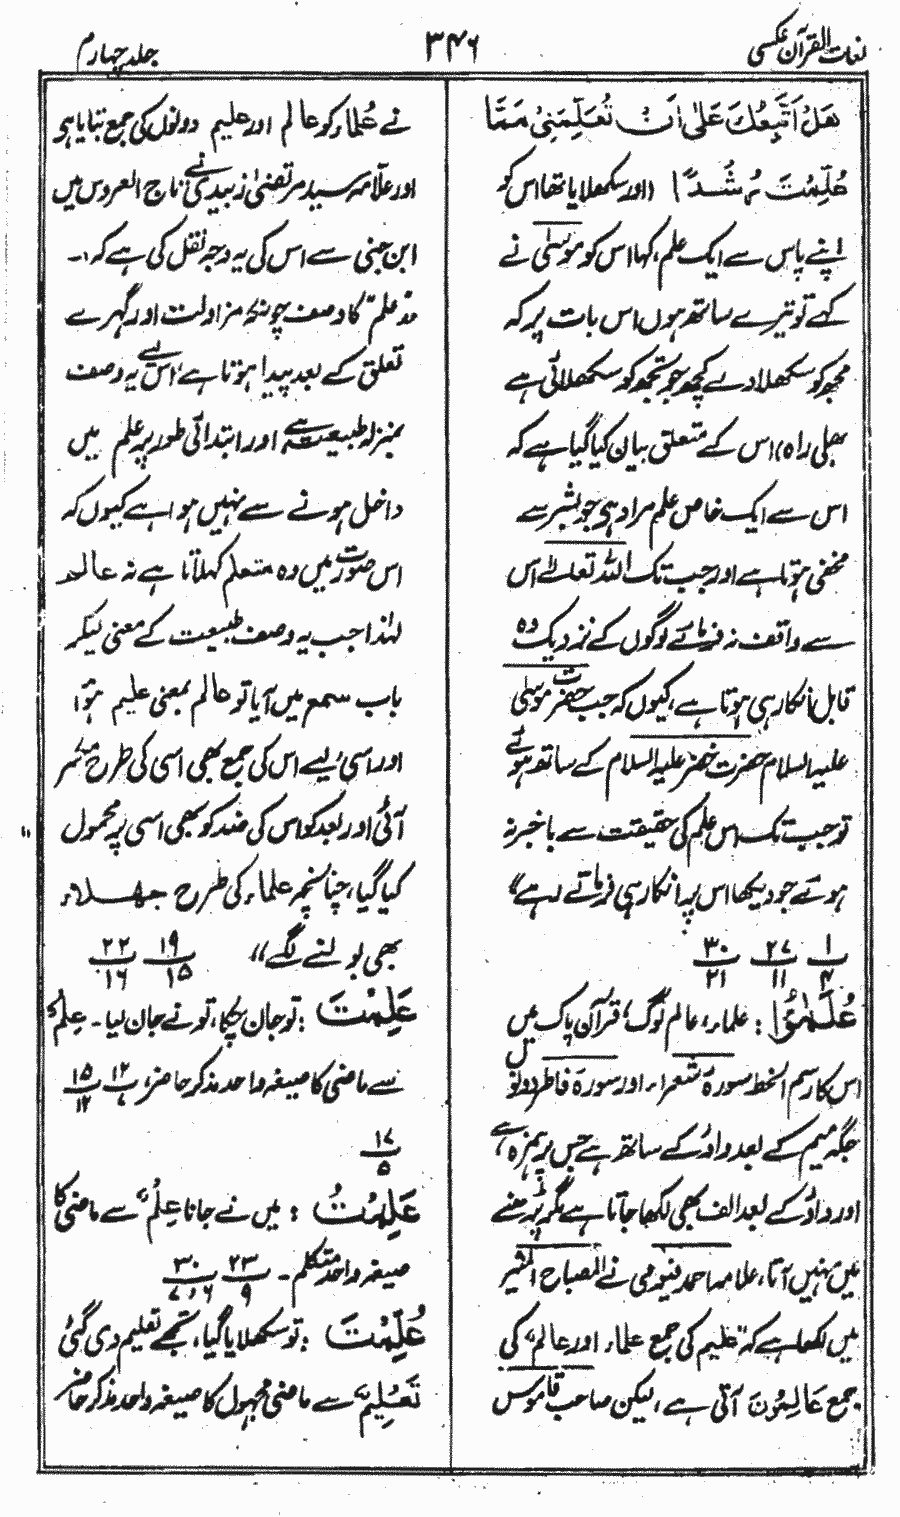 لغات القرآن عکسی
۳۴۶
جلد چہارم
هَلْ اَتَّبِعُكَ عَلٰى اَنْ تُعَلِّمَنِىْ مِمَّا
عُلِّمْتَ رُشْدًا (اور سکھلایا تھا اس کو
اپنے پاس سے ایک علم، کہا اس کو موسیٰ نے
کہے تو تیرے ساتھ ہوں اس بات پر کہ
مجھ کو سکھلا دے کچھ جو تجھ کو سکھلائی ہے
بھلی راہ) اس کے متعلق بیان کیا گیا ہے کہ
اس سے ایک خاص علم مراد ہی جو بشر سے
مخفی ہوتا ہے اور جب تک اللہ تعالےٰ اس
سے واقف نہ فرمائے لوگوں کے نزدیک وہ
قابل انکار ہی ہوتا ہے، کیوں کہ جب حضرت موسیٰ
علیہ السلام حضرت خضر علیہ السلام کے ساتھ ہوئے
تو جب تک اس علم کی حقیقت سے باخبر نہ
ہوئے جو دیکھا اس پر انکار ہی فرماتے رہے“
۱/۴ ۲۷/۱۱ ۳۰/۲۱
عُلَمٰٓؤُا : علماء، عالم لوگ، قرآن پاک میں
اس کا رسم الخط سورۃ شعراء اور سورۃ فاطر دونوں
جگہ میم کے بعد واؤ کے ساتھ ہے جس پر ہمزہ ہے
اور واؤ کے بعد الف بھی لکھا جاتا ہے مگر پڑھنے
میں نہیں آتا، علامہ احمد فیومی نے المصباح المنیر
میں لکھا ہے کہ ”علیم کی جمع علماء اور عالم کی
جمع عَالِمُوْنَ آتی ہے، لیکن صاحب قاموس
نے عُلماء کو عالم اور علیم دونوں کی جمع بتایا ہی
اور علّامہ سید مرتضیٰ زبیدی نے تاج العروس میں
ابن جنی سے اس کی یہ وجہ نقل کی ہے کہ:۔
”علم کا وصف چونکہ مزاولت اور گہرے
تعلق کے بعد پیدا ہوتا ہے، اس لیے یہ وصف
بمنزلہ طبیعت ہے اور ابتدائی طور پر علم میں
داخل ہونے سے نہیں ہوا ہے کیوں کہ
اس صورت میں وہ متعلم کہلاتا ہے نہ عالم
لہٰذا جب یہ وصف طبیعت کے معنی لیکر
باب سمع میں آیا تو عالم بمعنی علیم ہوا،
اور اسی لیے اس کی جمع بھی اسی کی طرح
آئی اور بعد کو اس کی ضد کو بھی اسی پر محمول
کیا گیا، چنانچہ علماء کی طرح جھلاء
بھی بولنے لگے“ ۱۹/۱۵ ۲۲/۱۶
عَلِمْتَ : تو جان چکا، تو نے جان لیا۔ عِلْمٌ
سے ماضی کا صیغہ واحد مذکر حاضر،
۱۷/۵
عَلِمْتُ : میں نے جانا عِلْمٌ سے ماضی کا
صیغہ واحد متکلم۔ ۲۳/۹
عُلِّمْتَ : تو سکھلایا گیا، تجھے تعلیم دی گئی
تَعْلِيْمٌ سے ماضی مجہول کا صیغہ واحد مذکر حاضر